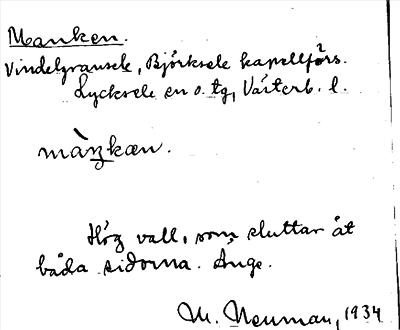 Manken.
Vindelgransele, Björksele kapellförs.
Lycksele sn o. tg, Västerb. l.
màŋkæn.
Hög vall, som sluttar åt
båda sidorna. Änge.
M. Neuman, 1934